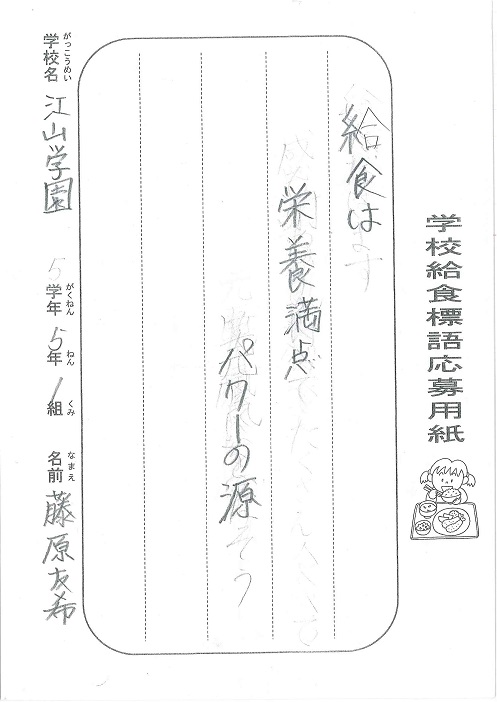 学校給食標語応募用紙
給食は
栄養満点
パワーの源
学校名 がっこうめい 江山学園 5 学年 がくねん 5 年 ねん 1 組 くみ 名前 なまえ 藤原友希